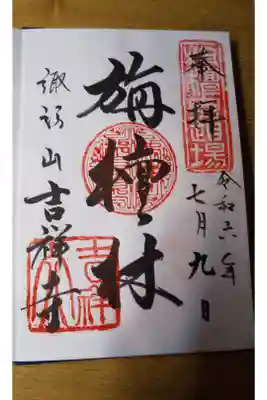 奉拝
令和六年
七月九日
旃檀林
諏訪山
吉祥寺